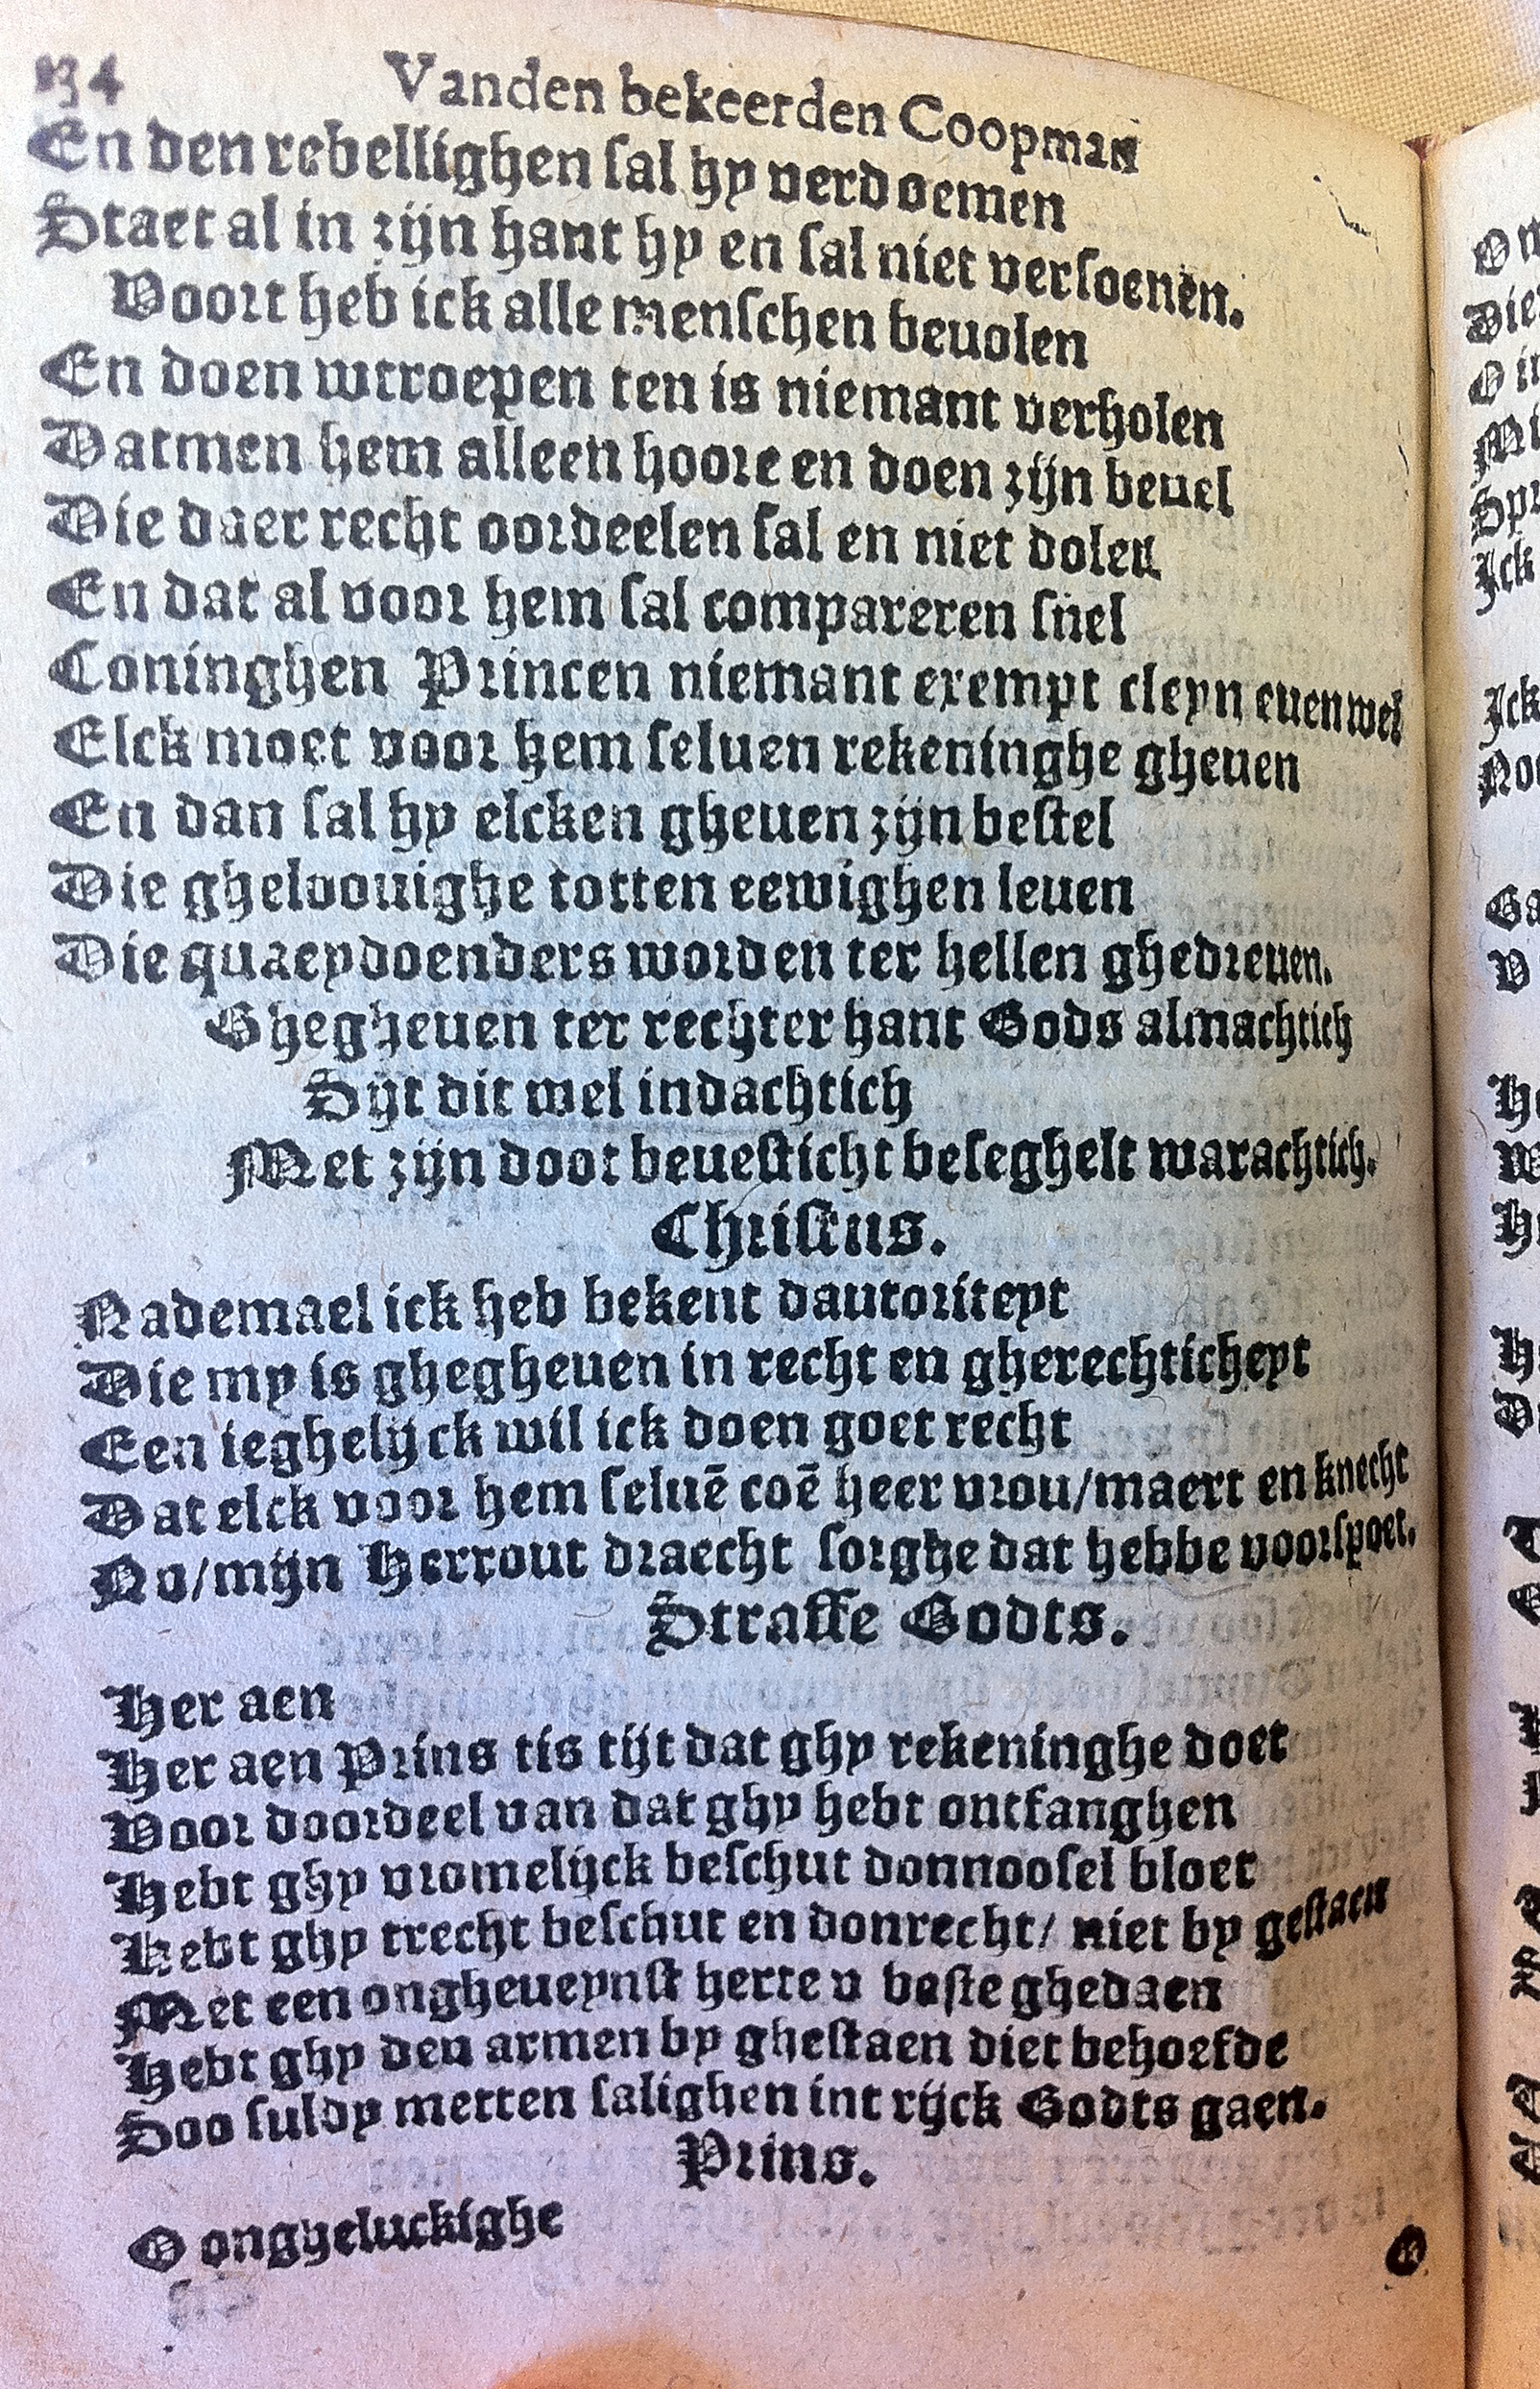 134 Vanden bekeerden Coopman
En den rebellighen sal hy verdoemen
Staet al in zijn hant hy en sal niet versoenen.
Voort heb ick alle menschen beuolen
En doen wtroepen ten is niemant verholen
Datmen hem alleen hoore en doen zijn beuel
Die daer recht oordeelen sal en niet dolen
En dat al voor hem sal compareren snel
Coninghen Princen niemant exempt cleyn euenwel
Elck moet voor hem seluen rekeninghe gheuen
En dan sal hy elcken gheuen zijn bestel
Die gheloouighe totten eewighen leuen
Die quaeydoenders worden ter hellen ghedreuen.
Ghegheuen ter rechter hant Gods almachtich
Sijt dit wel indachtich
Met zijn doot beuesticht beseghelt warachtich.
Christus.
Nademael ick heb bekent dautoriteyt
Die my is ghegheuen in recht en gherechticheyt
Een ieghelijck wil ick doen goet recht
Dat elck voor hem seluē coē heer vrou/maert en knecht
No/mijn Herrout draecht sorghe dat hebbe voorspoet.
Straffe Godts.
Her aen
Her aen Prins tis tijt dat ghy rekeninghe doet
Voor doordeel van dat ghy hebt ontfanghen
Hebt ghy vromelijck beschut donnoosel bloet
Hebt ghy trecht beschut en donrecht/ niet by gestaen
Met een ongheueynst herte v beste ghedaen
Hebt ghy den armen by ghestaen diet behoefde
Soo suldy metten salighen int rijck Godts gaen.
Prins.
O ongheluckighe